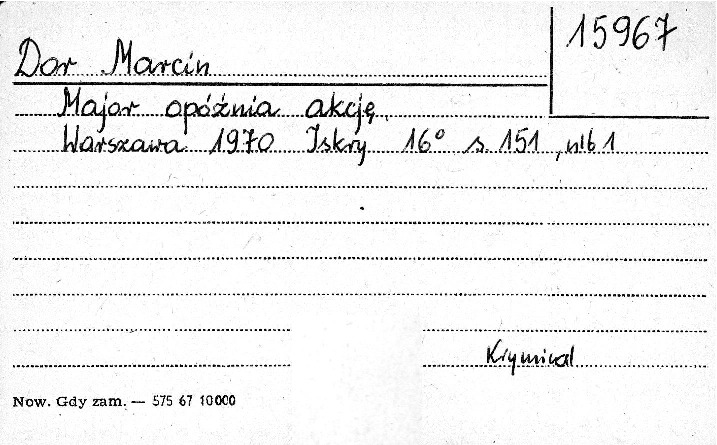 15967
Dor Marcin
Major opóźnia akcję.
Warszawa 1970 Iskry 16° s. 151, nlb 1
Kryminal
Now. Gdy zam. — 575 67 10000